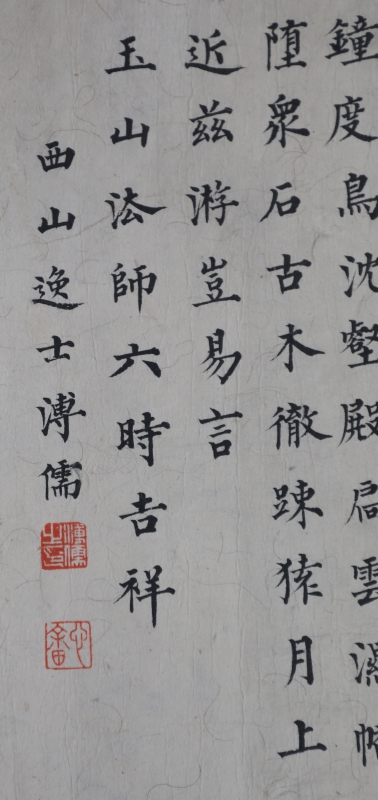 鐘度鳥沈壑殿扃雲濕
堕眾石古木徹踈猿月上
近茲游豈易言
玉山法師六時吉祥
西山逸士溥儒
溥儒之印
心畬